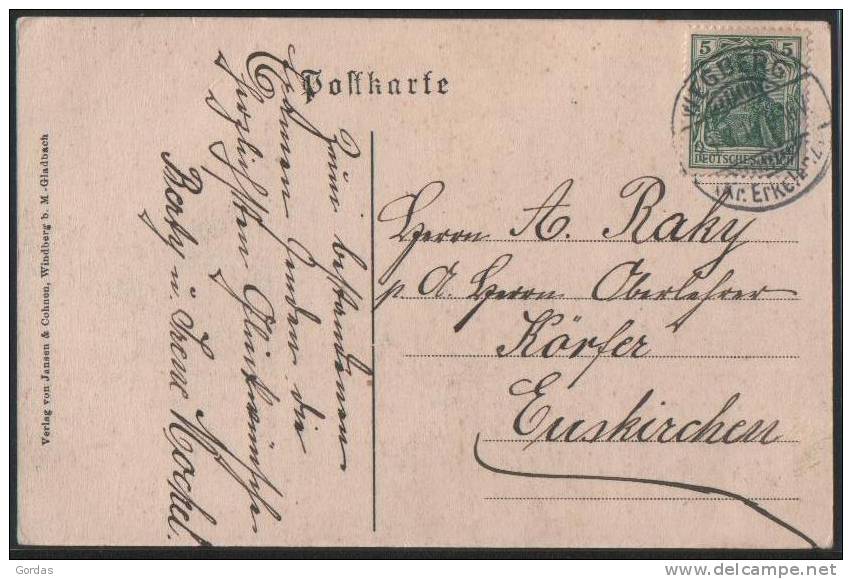 Postkarte
5 5
DEUTSCHES REICH
WEGBERG
(Kr. Erkelenz)
Zum bestandenen
Examen senden die
herzlichsten Glückwünsche
Berty u. Irene Hockel.
Herrn A. Raky
p. A. Herrn Oberlehrer
Körfer
Euskirchen
Verlag von Jansen & Cohnen, Windberg b. M.-Gladbach
Gordas
delcampe.net